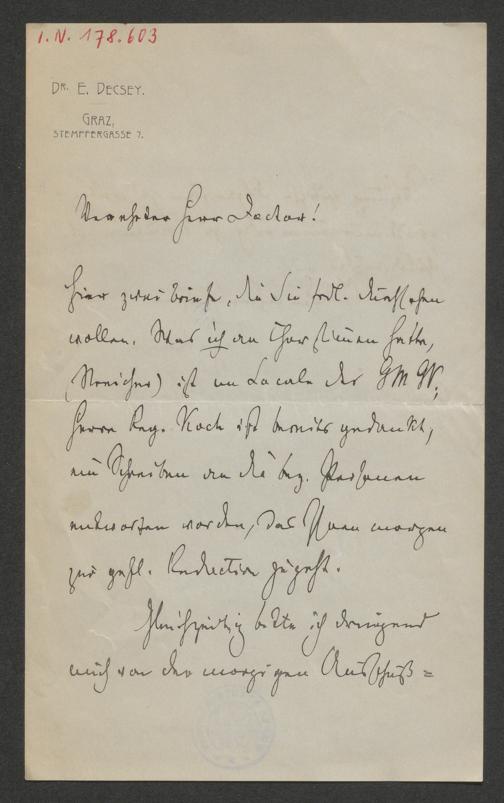 I.N. 178.603
DR. E. DECSEY.
GRAZ,
STEMPFERGASSE 7.
Verehrter Herr Doctor!
hier zwei Briefe, die Sie frdl. durchsehen
wollen. Was ich an Chorstimmen hatte,
ist im Locale des
Herrn Reg. Koch ist bereits gedankt,
ein Schreiben an die bez. Personen
entworfen worden, das Ihnen morgen
zur gefl. Redaction zugeht.
Gleichzeitig bitte ich dringend
mich von der morgigen Ausschuß=